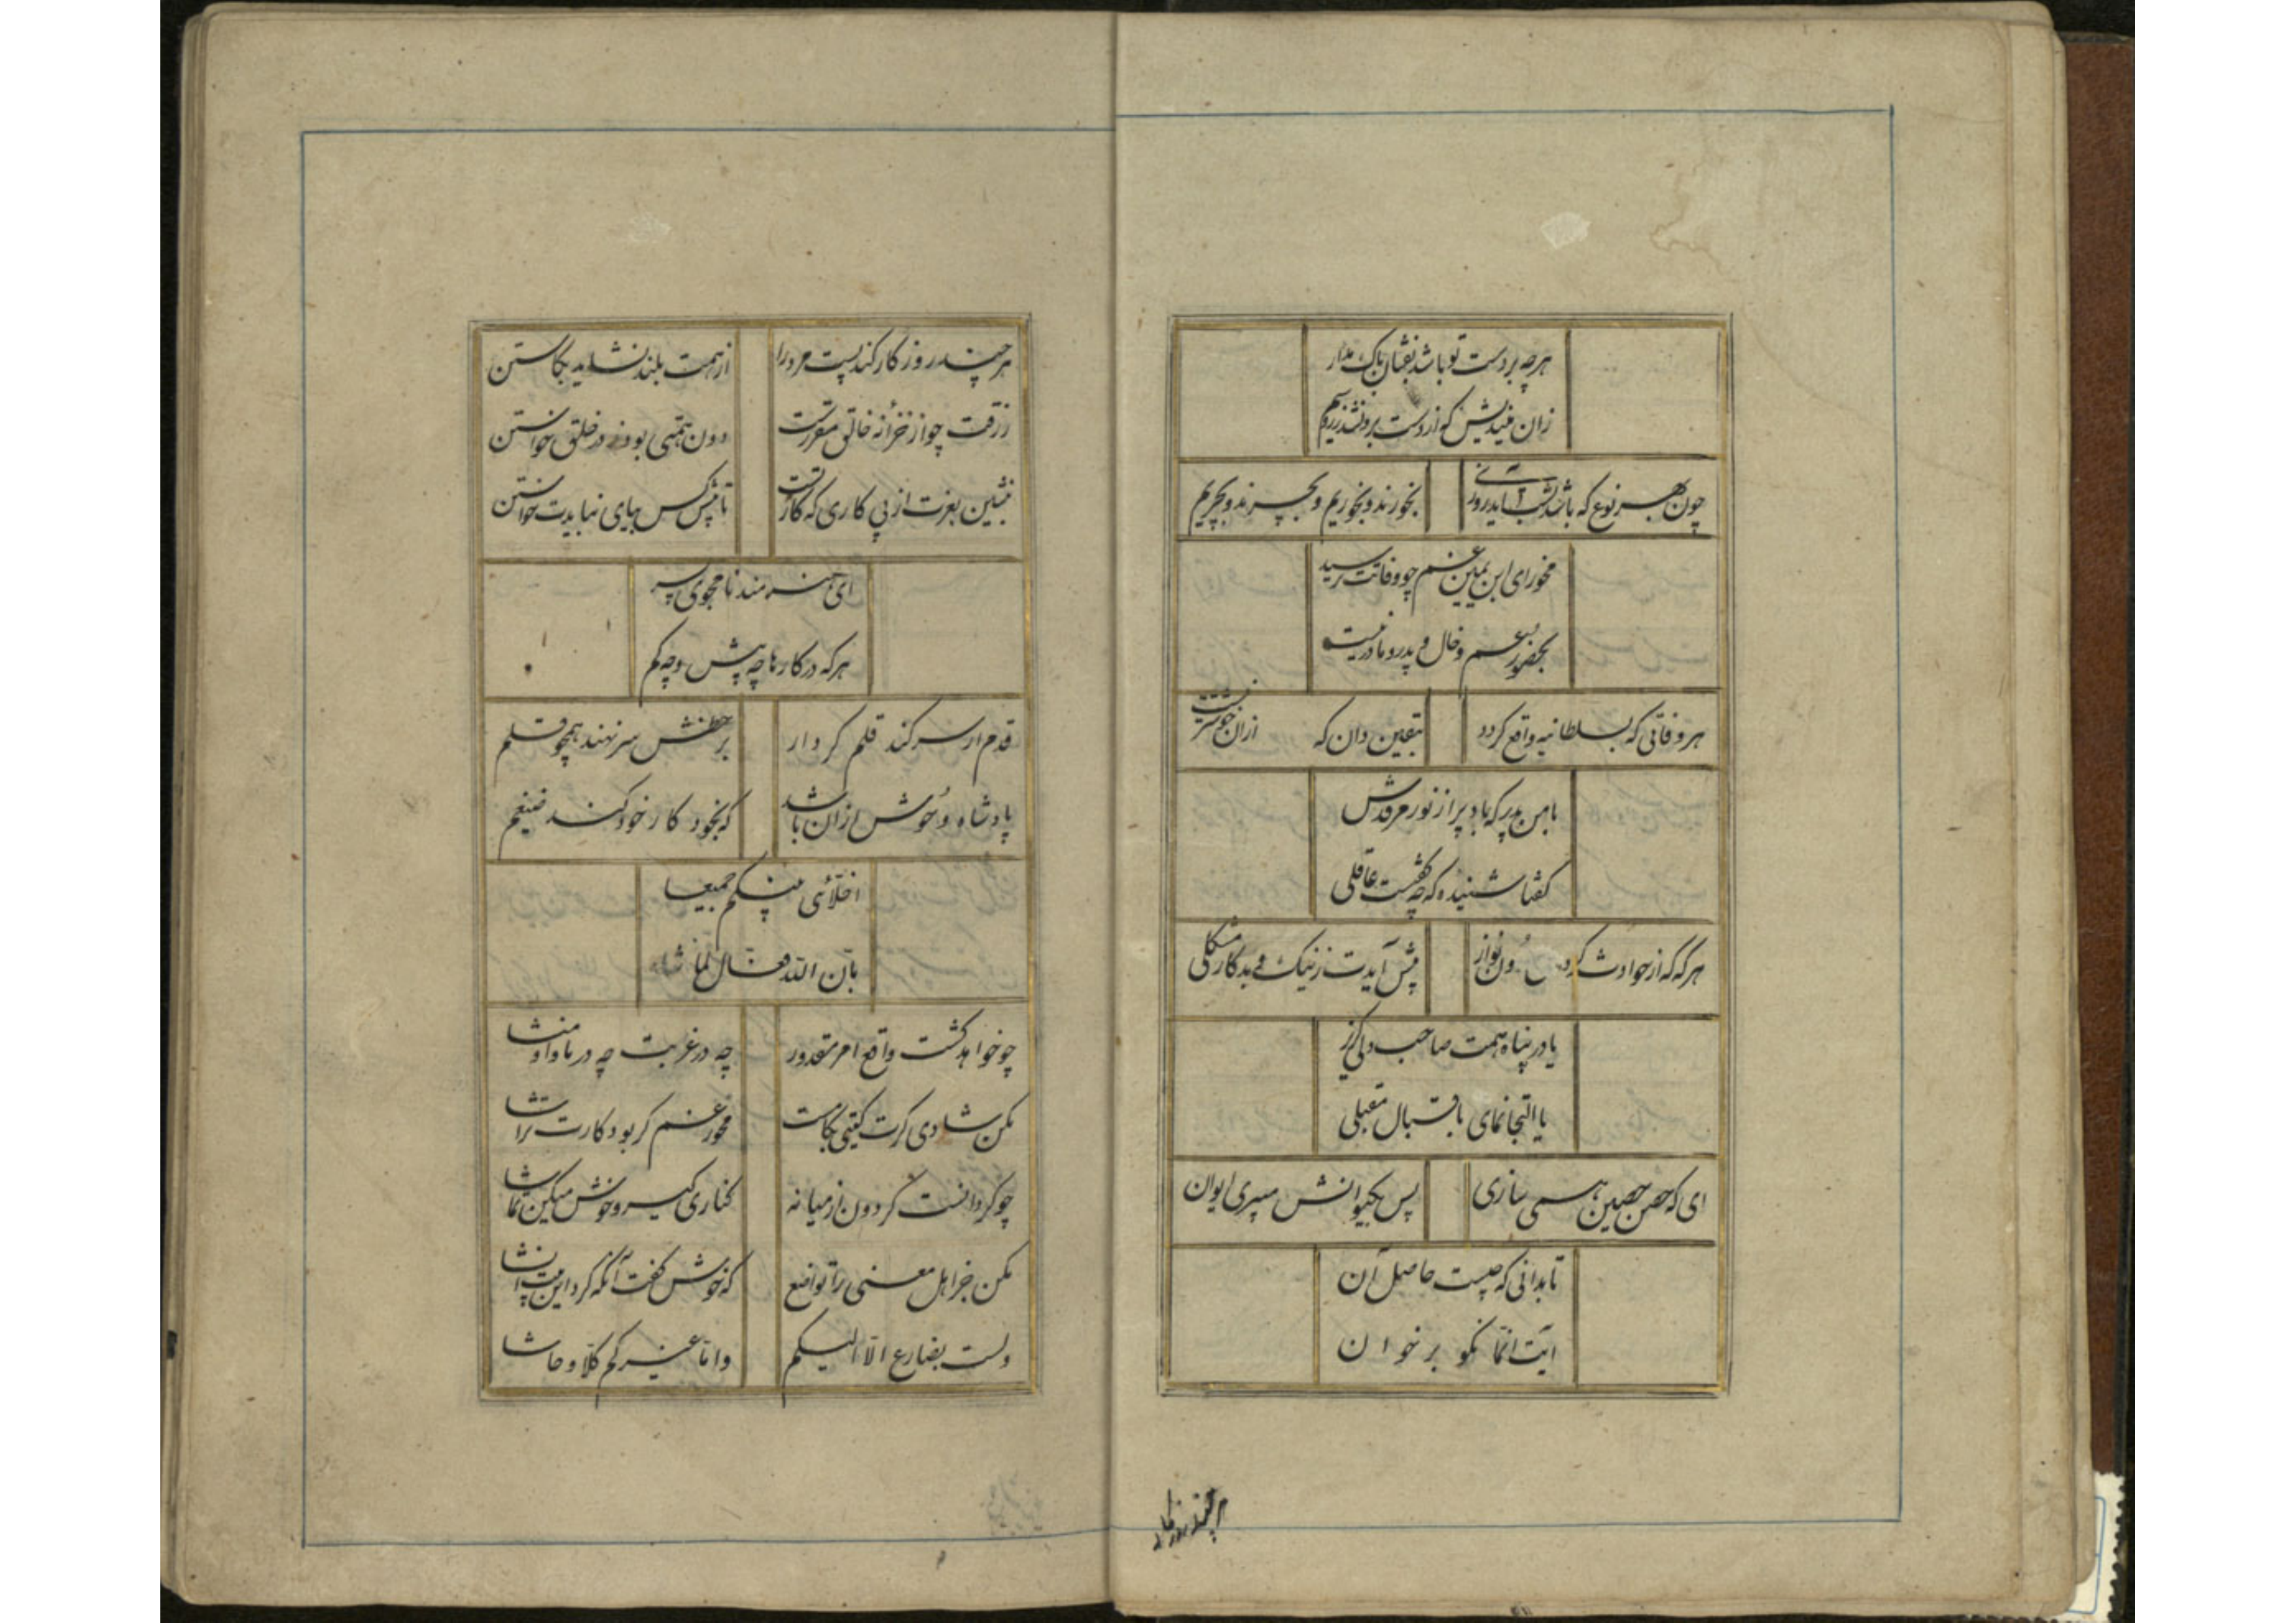 هرچه بر دست تو باشد بفشان باک مدار
زان میندیش که از دست برون شد زر و سیم
چون بهر نوع که باشد بشب آید روز
بخورند و بخوریم و بچرند و بچریم
مخور ای ابن یمین غم چو وفاتت رسید
بحضور عم و خال و پدر و مادر نیست
هر وفاتی که بسلطانیه واقع گردد
بیقین دان که ازان خوشتر نیست
با من پدر که باد پر از نور مرقدش
گفتا شنیده که چه گفتست عاقلی
هر گه که از حوادث گردون دون نواز
پیش آیدت ز نیک و بد کار مشکلی
یا در پناه همت صاحب دلی گریز
یا التجا نمای باقبال مقبلی
ای که حصن حصین همی سازی
پس بکیوانش میبری ایوان
تا بدانی که چیست حاصل آن
آیت انما نکو بر خوان
هر چند روزگار
هر چند روزگار کند پست مرد را
از همت بلند نشاید بکاستن
رزقت چو از خزانه خالق مقررست
دون همتی بود ز در خلق خواستن
بنشین بعزت از پی کاری که کار تست
تا پیش کس بپای نبایدت خاستن
ای هنرمند نامجوی پسر
هر که در کارها چه بیش و چه کم
قدم از سر کند قلم کردار
بر خطش سر نهند همچو قلم
پادشاه وحوش ازان باشد
که بخود کار خود کند ضیغم
اخلائی بینکم جمیعا
بان الله فعال لما شاء
چو خواهد گشت واقع امر مقدور
چه در غربت چه در ماوا و منشا
مکن شادی گرت گیتی بکامست
مخور غم گر بود کارت تراشا
چو گردانست گردون از میانه
کناری گیر و خوش میکن تماشا
مکن جز اهل معنی را تواضع
که خوش گفت آنکه کرد این بیت انشا
ولست بضارع الا الیکم
واما غیرکم کلا و حاشا